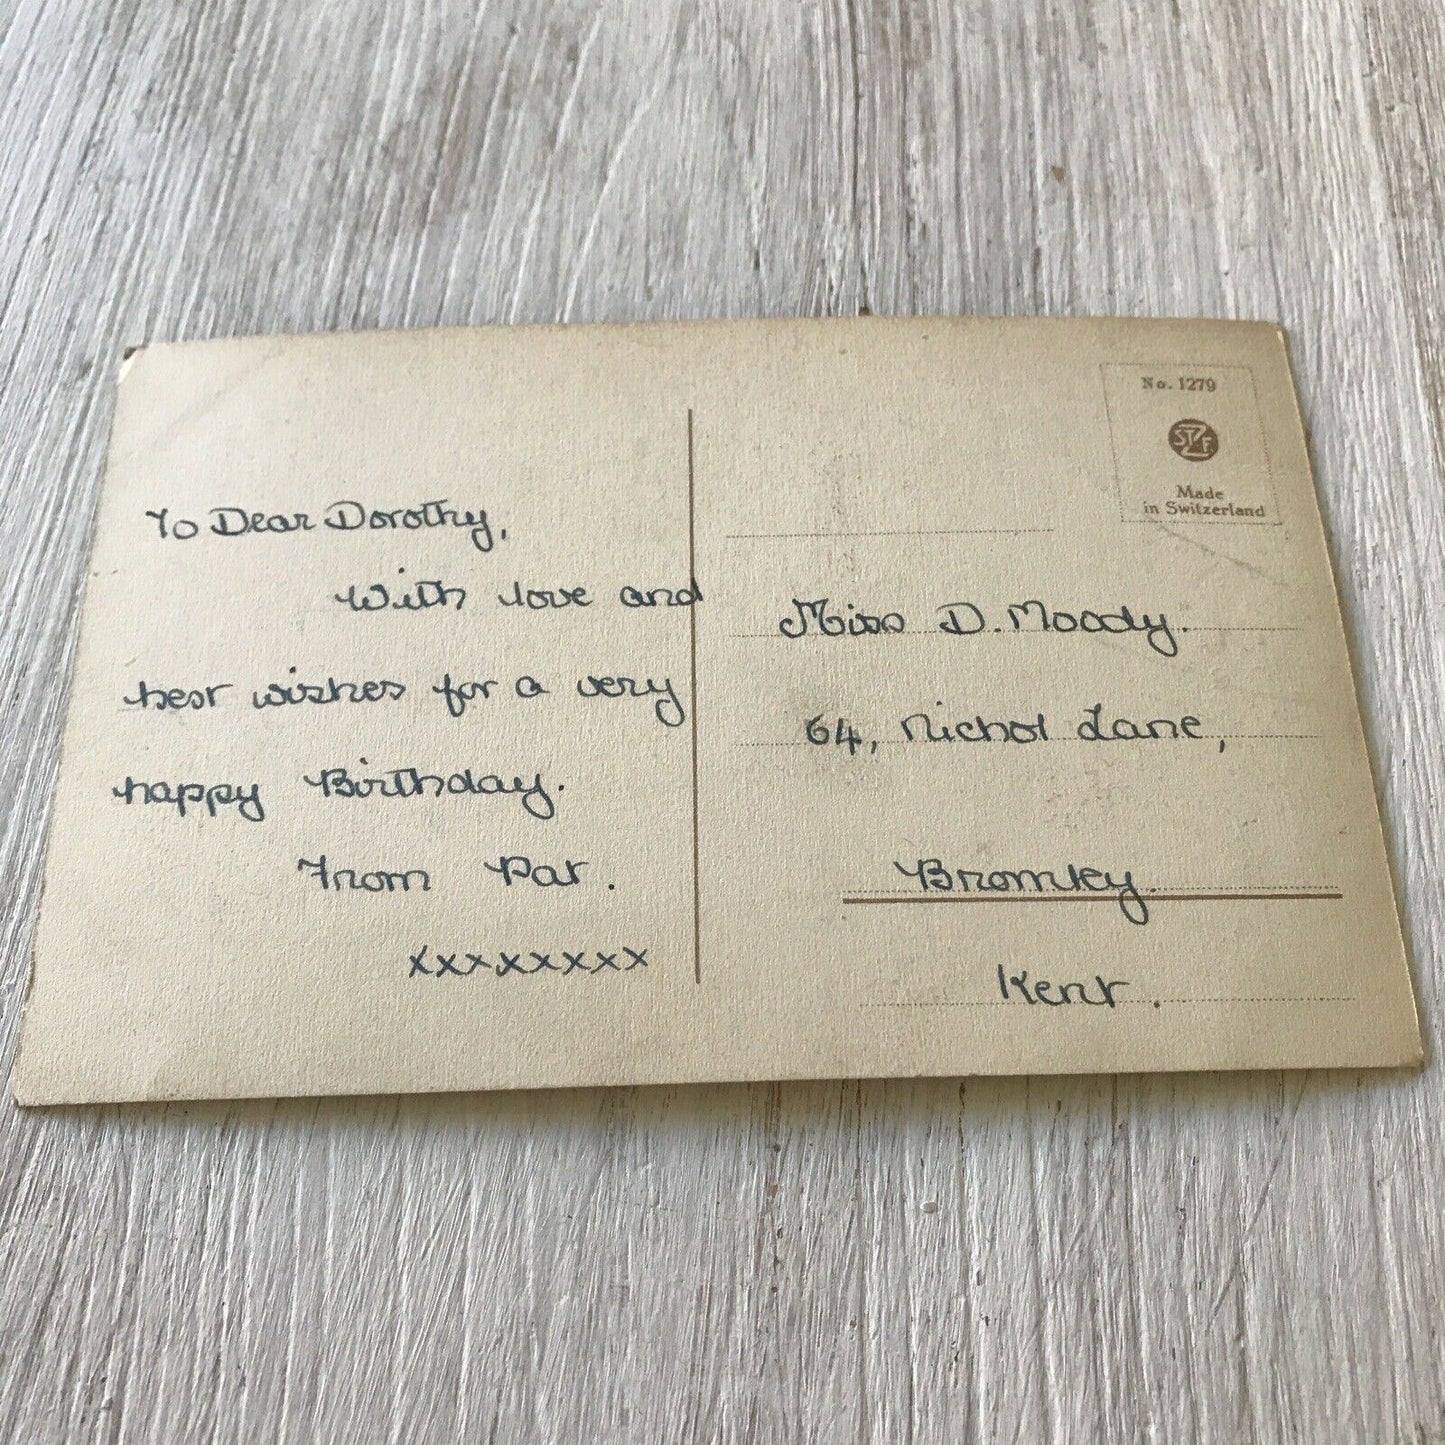 To Dear Dorothy,
With love and
best wishes for a very
happy Birthday.
From Pat.
xxxxxxxx
No. 1279
STZF
Made
in Switzerland
Miss D. Moody.
64, Nichol Lane,
Bromley.
Kent.